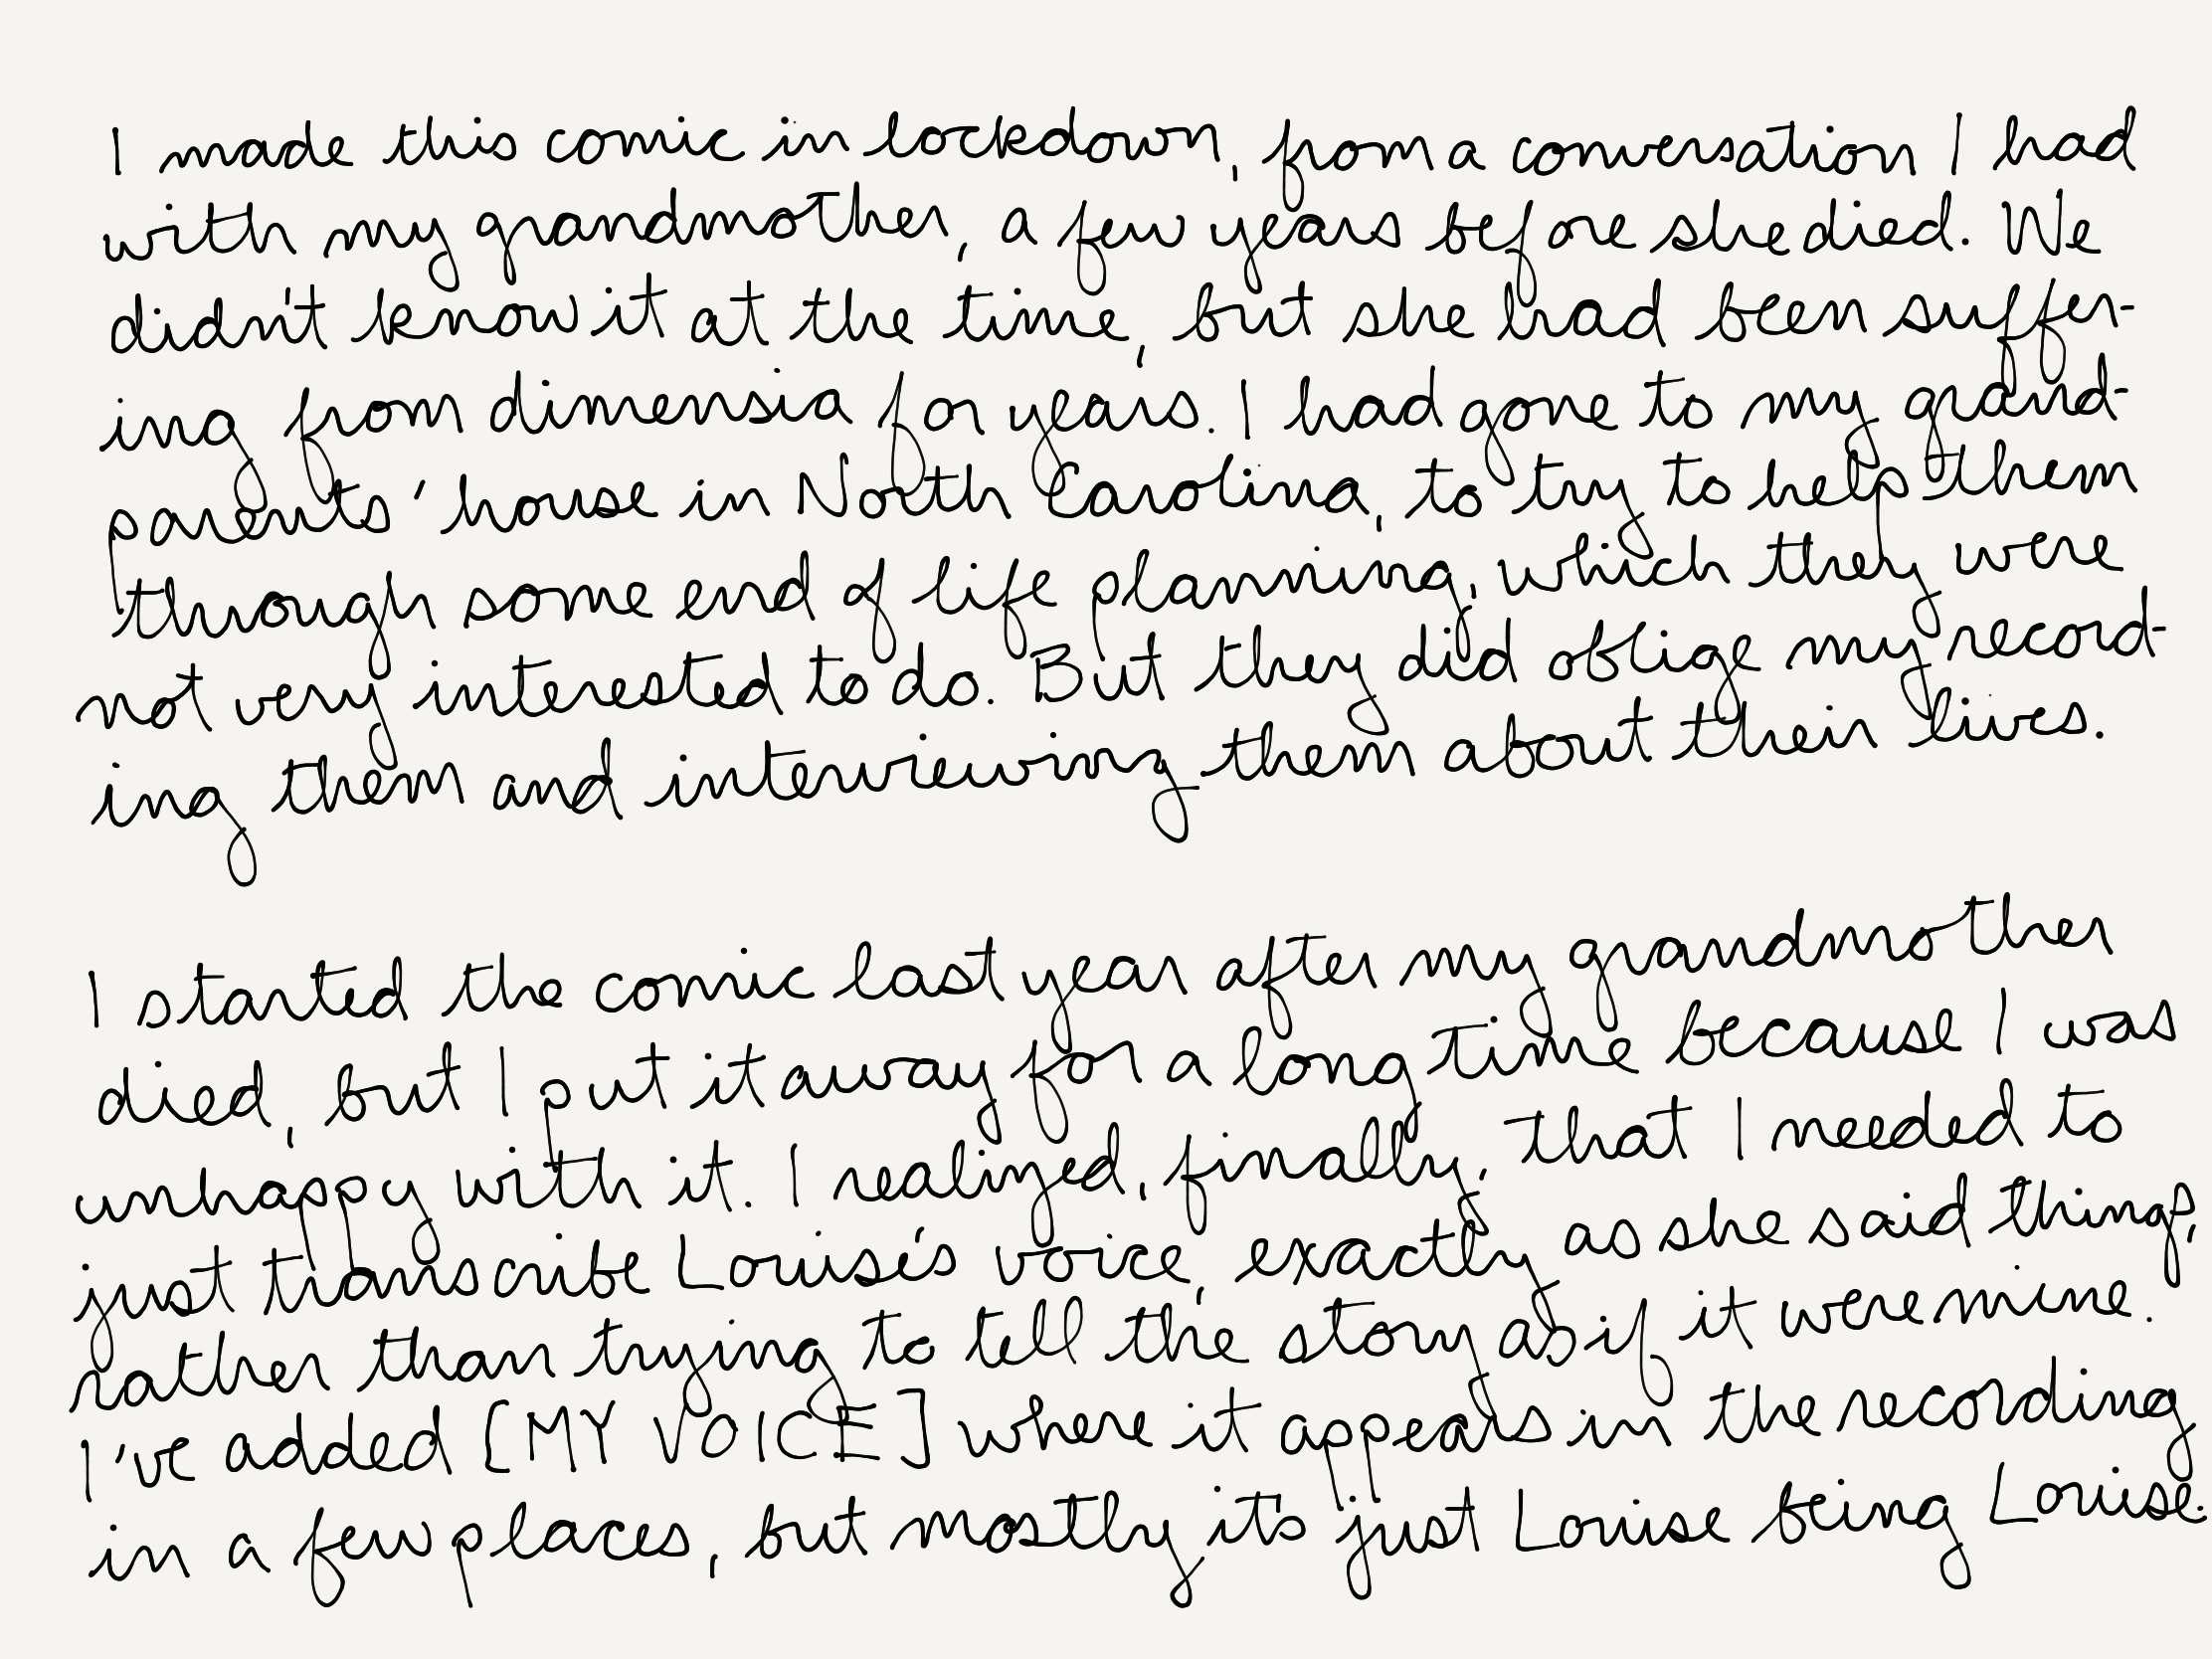 I made this comic in lockdown, from a conversation I had
with my grandmother, a few years before she died. We
didn't know it at the time, but she had been suffer-
ing from dimensia for years. I had gone to my grand-
parents' house in North Carolina, to try to help them
through some end of life planning, which they were
not very interested to do. But they did oblige my record-
ing them and interviewing them about their lives.

I started the comic last year after my grandmother
died, but I put it away for a long time because I was
unhappy with it. I realized, finally, that I needed to
just transcribe Louise's voice, exactly as she said things,
rather than trying to tell the story as if it were mine.
I've added [MY VOICE] where it appears in the recording
in a few places, but mostly it's just Louise being Louise.